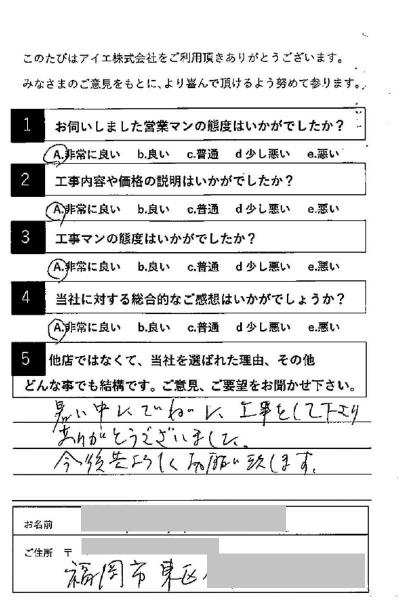 このたびはアイエ株式会社をご利用頂きありがとうございます。
みなさまのご意見をもとに、より喜んで頂けるよう努めて参ります。
1 お伺いしました営業マンの態度はいかがでしたか?
A.非常に良い b.良い c.普通 d少し悪い e.悪い
2 工事内容や価格の説明はいかがでしたか?
A.非常に良い b.良い c.普通 d少し悪い e.悪い
3 工事マンの態度はいかがでしたか?
A.非常に良い b.良い c.普通 d少し悪い e.悪い
4 当社に対する総合的なご感想はいかがでしょうか?
A.非常に良い b.良い c.普通 d少し悪い e.悪い
5 他店ではなくて、当社を選ばれた理由、その他
どんな事でも結構です。ご意見、ご要望をお聞かせ下さい。
暑い中、ていねいに工事をして下さり
ありがとうございました。
今後共よろしくお願い致します。
お名前
ご住所 〒
福岡市東区